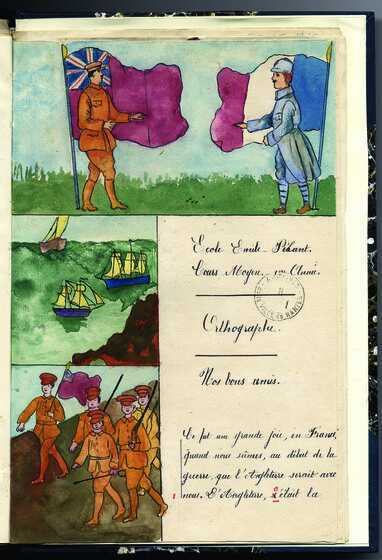 Ecole Emile-Péhant.
Cours Moyen. 1ère Année.
Orthographe.
Nos bons amis.
Ce fut une grande joie, en France,
quand nous sûmes, au début de la
guerre, que l'Angleterre serait avec
nous. L'Angleterre, c'était la